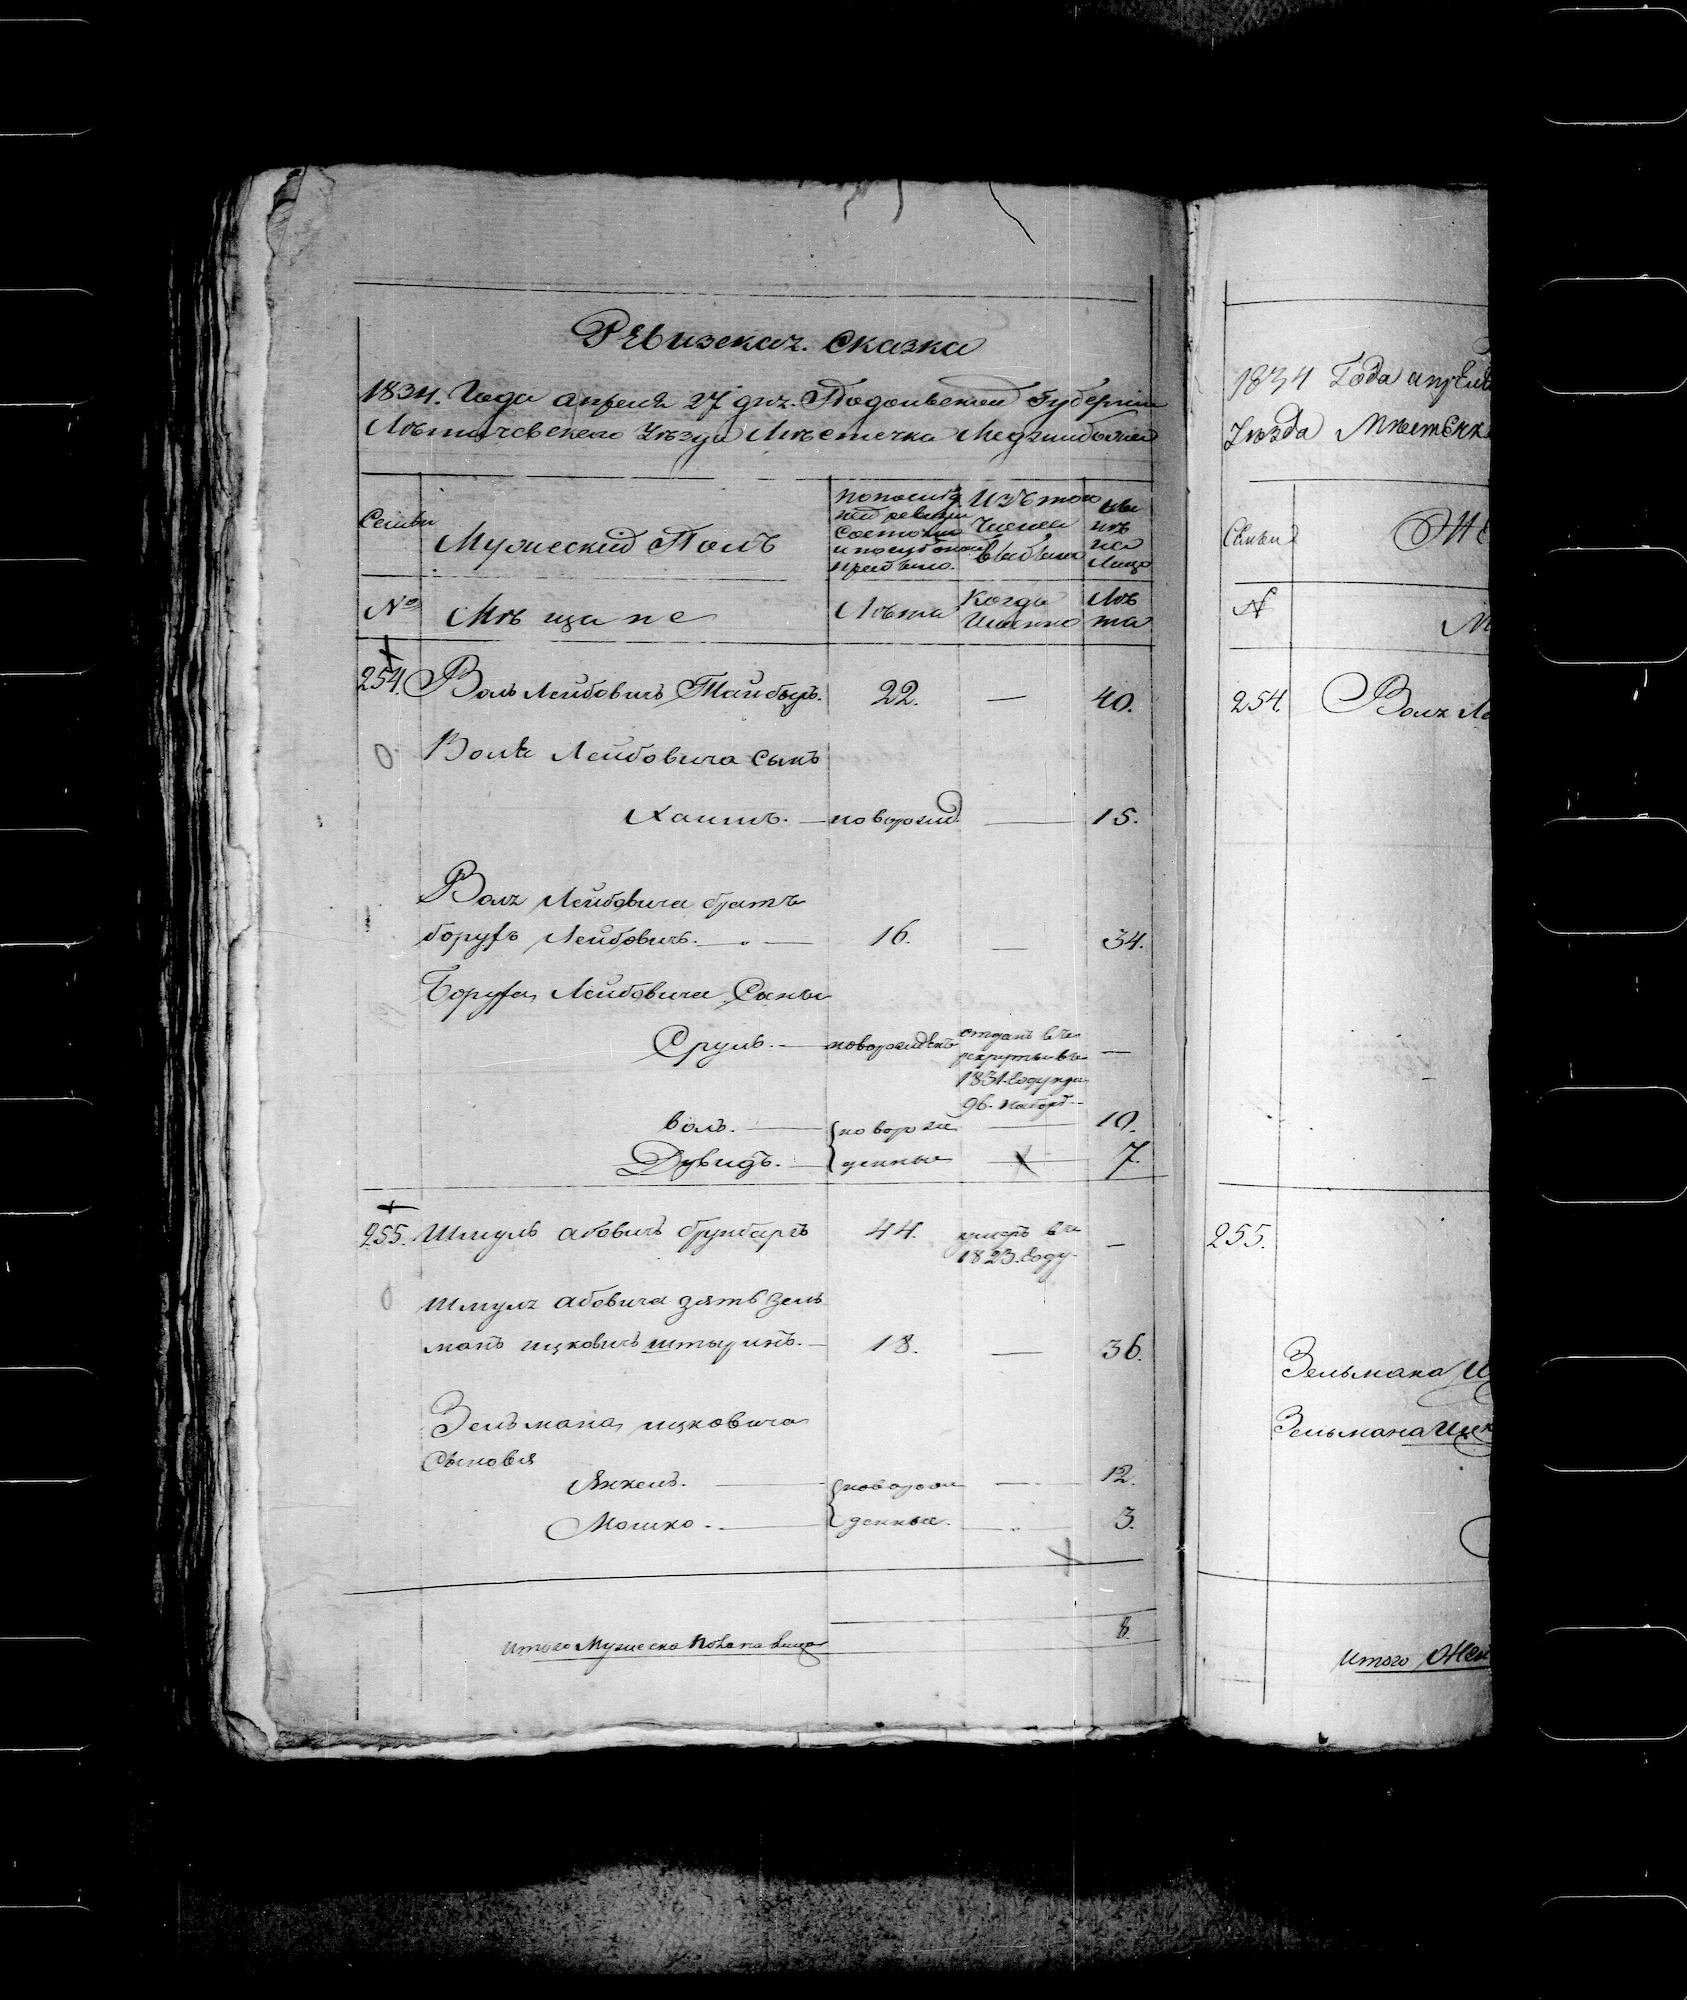 Ревизская Сказка
1834. Года апреля 27 дня. Подольской Губернии
Летичевского Уезда Местечка Меджибожа
Семьи
Мужеский Полъ
по послед
ней ревизии
состояло
и после оной
прибыло.
Изъ того
Числа
выбыло
ны
нѣ
на
лицо
№
Мѣщане
Лѣта
Когда
Именно
Лѣ
та
254. Волъ Лейбовичъ Тайберъ. 22. — 40.
Волѣ Лейбовича сынъ
Хаимъ. — новорожд. — 15.
Волѣ Лейбовича братъ
Борухъ Лейбовичъ. — 16. — 34.
Боруха Лейбовича Сыны
Сруль. — новорожденъ отданъ въ —
рекруты въ
1831. Году при
96. наборѣ —
Волъ. — новорож — 10.
Дувидъ. — денные — 7.
255. Шмуль Абовичъ Грунбергъ 44. умеръ въ —
1823. Году.
Шмуля Абовича зять Зель
манъ Ицковичъ Штыринъ. — 18. — 36.
Зельмана Ицковича
Сыновья
Янкель. — новорож — 12.
Мошко. — денные. — 3.
Итого Мужеска Пола на лицо 8
1834 Года апреля
Уезда Местечк
Семьи
№
254 Волѣ Ле
255.
Зельмана И
Зельмана Ицк
Итого Жен